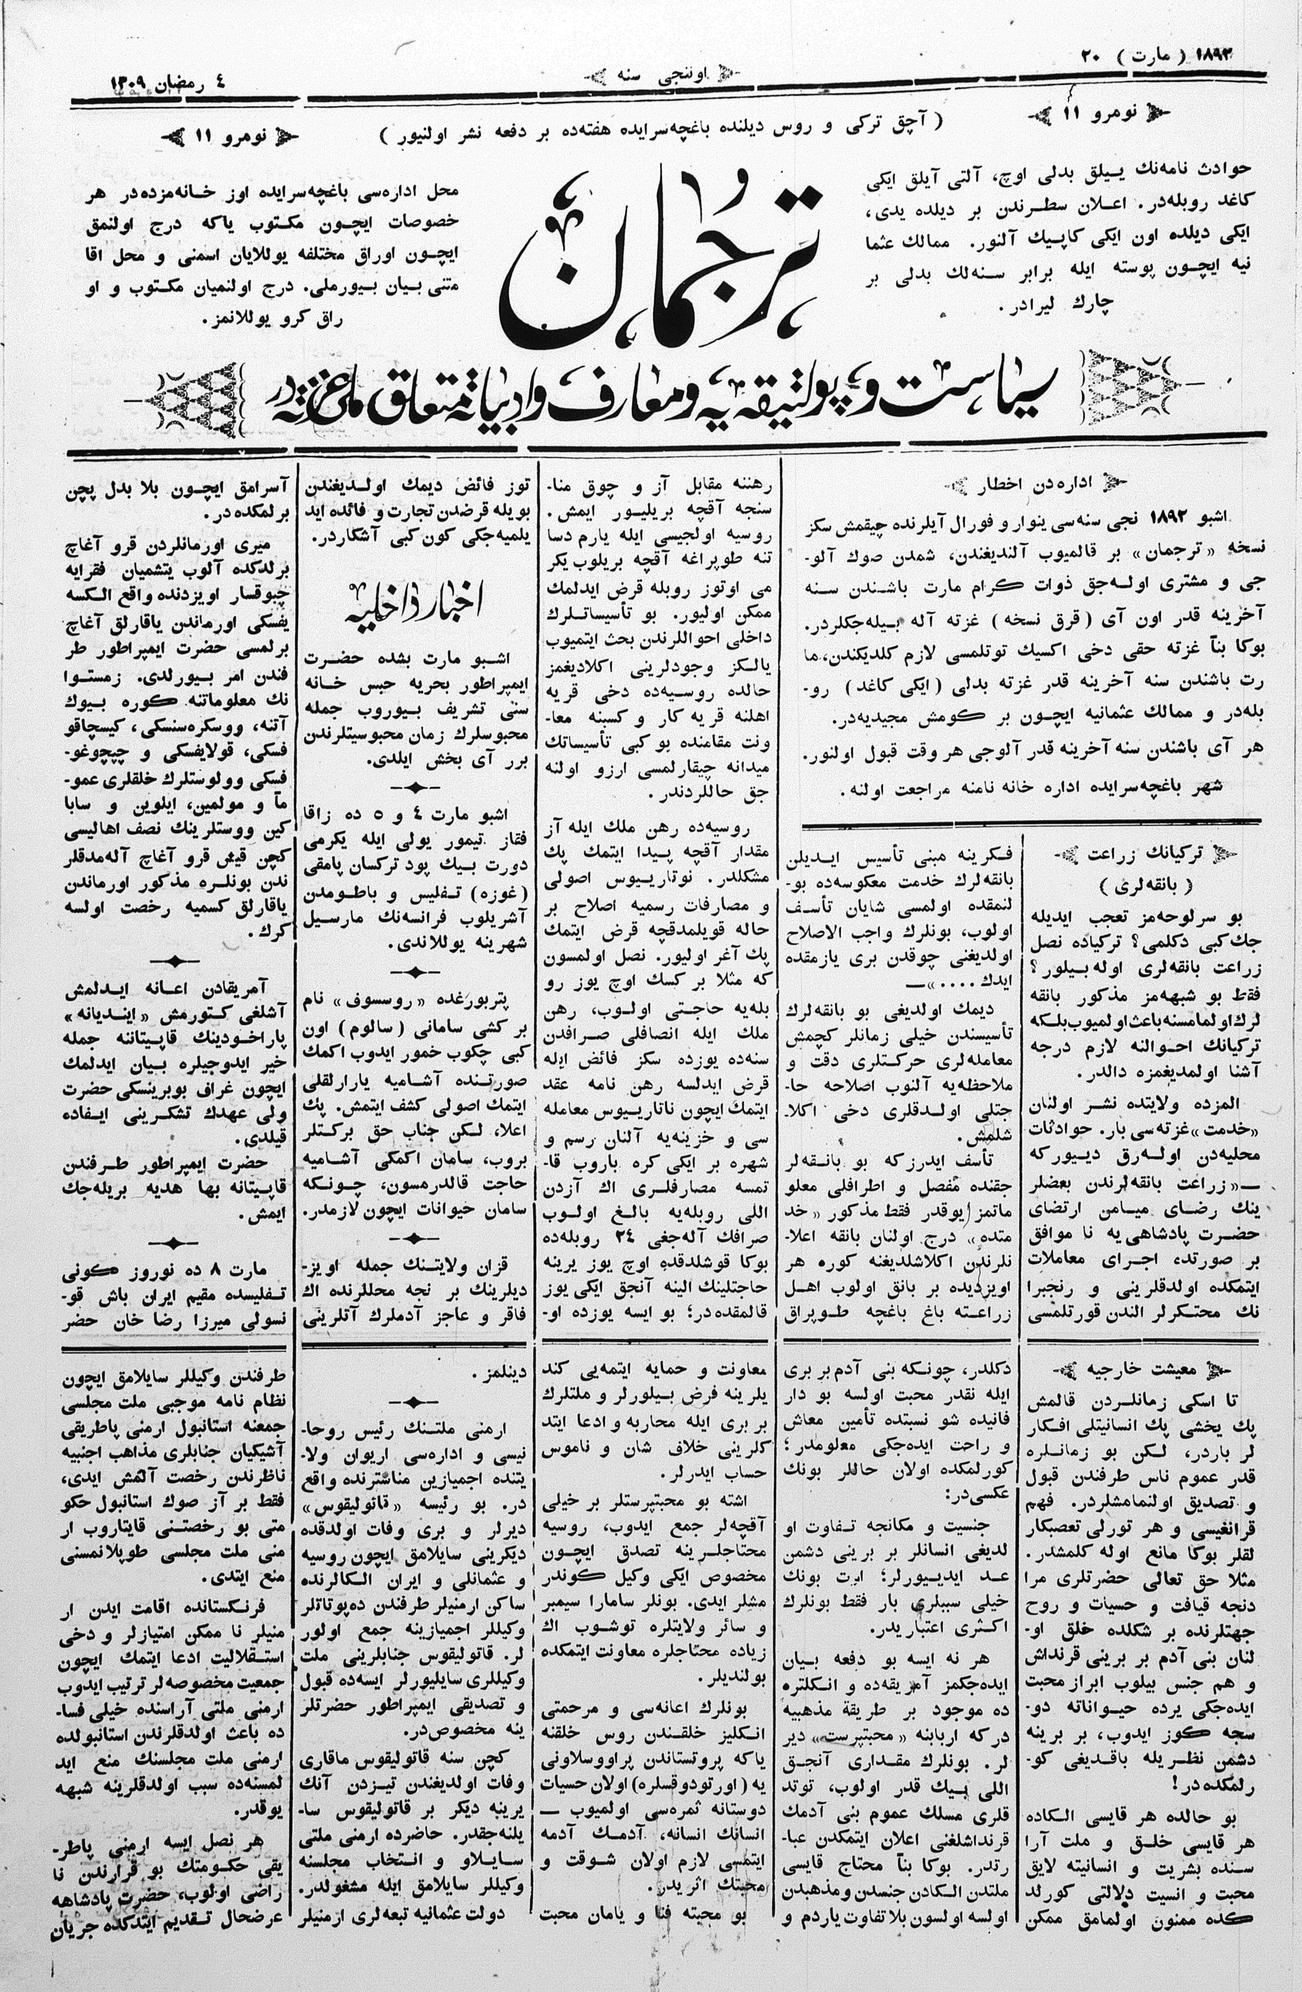 ١٨٩٢ ( مارت ) ٢٠
اوننجی سنه
٤ رمضان ١٣٠٩
نومرو ١١
( آچق ترکی و روس دیلنده باغچه‌سرایده هفته‌ده بر دفعه نشر اولنیور )
نومرو ١١
حوادث نامه‌نك ییلق بدلی اوچ، آلتی آیلق ایکی
کاغد روبله‌در. اعلان سطرندن بر دیلده یدی،
ایکی دیلده اون ایکی کاپیك آلنور. ممالك عثما
نیه ایچون پوسته ایله برابر سنه‌لك بدلی بر
چارك لیرادر.
ترجمان
محل اداره‌سی باغچه‌سرایده اوز خانه‌مزده‌در هر
خصوصات ایچون مکتوب یاکه درج اولنمق
ایچون اوراق مختلفه یوللایان اسمنی و محل اقا
متنی بیان بیورملی. درج اولنمیان مکتوب و او
راق کرو یوللانمز.
سیاست و پولتیقه‌یه و معارف و ادبیاته متعلق ملی غزته‌در
اداره‌دن اخطار
اشبو ١٨٩٢ نجی سنه‌سی ینوار و فورال آیلرنده چیقمش سکز
نسخه «ترجمان» بر قالمیوب آلندیغندن، شمدن صوك آلو-
جی و مشتری اوله‌جق ذوات کرام مارت باشندن سنه
آخرینه قدر اون آی (قرق نسخه) غزته آله بیله‌جکلردر.
بوکا بنآ غزته حقی دخی اکسیك توتلمسی لازم کلدیکندن، ما
رت باشندن سنه آخرینه قدر غزته بدلی (ایکی کاغد) رو-
بله‌در و ممالك عثمانیه ایچون بر کومش مجیدیه‌در.
هر آی باشندن سنه آخرینه قدر آلوجی هر وقت قبول اولنور.
شهر باغچه‌سرایده اداره خانه نامنه مراجعت اولنه.
ترکیانك زراعت
( بانقه‌لری )
بو سرلوحه‌مز تعجب ایدیله
جك کبی دکلمی؟ ترکیاده نصل
زراعت بانقه‌لری اوله بیلور؟
فقط بو شبهه‌مز مذکور بانقه
لرك اولمامسنه باعث اولمیوب بلکه
ترکیانك احوالنه لازم درجه
آشنا اولمدیغمزه دالدر.
المزده ولایتده نشر اولنان
«خدمت» غزته‌سی بار. حوادثات
محلیه‌دن اوله‌رق دییورکه
—«زراعت بانقه‌لرندن بعضلر
ینك رضای میامن ارتضای
حضرت پادشاهی‌یه نا موافق
بر صورتده، اجرای معاملات
ایتمکده اولدقلرینی و رنجبرا
نك محتکرلر الندن قورتلمسی
فکرینه مبنی تأسیس ایدیلن
بانقه‌لرك خدمت معکوسه‌ده بو-
لنمقده اولمسی شایان تأسف
اولوب، بونلرك واجب الاصلاح
اولدیغی چوقدن بری یازمقده
ایدك ....»—
دیمك اولدیغی بو بانقه‌لرك
تأسیسندن خیلی زمانلر کچمش
معامله‌لری حرکتلری دقت و
ملاحظه‌یه آلنوب اصلاحه حا-
جتلی اولدقلری دخی اکلا-
شلمش.
تأسف ایدرزکه بو بانقه‌لر
حقنده مفصل و اطرافلی معلو
ماتمز یوقدر فقط مذکور «خد
متده» درج اولنان بانقه اعلا-
نلرندن اکلاشلدیغنه کوره هر
اویزدیده بر بانق اولوب اهل
زراعته باغ باغچه طوپراق
رهننه مقابل آز و چوق منا-
سنجه آقچه بریلیور ایمش.
روسیه اولچیسی ایله یارم دسا
تنه طوپراغه آقچه بریلوب یکر
می اوتوز روبله قرض ایدلمك
ممکن اولیور. بو تأسیساتلرك
داخلی احواللرندن بحث ایتمیوب
یالکز وجودلرینی اکلادیغمز
حالده روسیه‌ده دخی قریه
اهلنه قریه کار و کسبنه معا-
ونت مقامنده بو کبی تأسیساتك
میدانه چیقارلمسی ارزو اولنه
جق حاللردندر.
روسیه‌ده رهن ملك ایله آز
مقدار آقچه پیدا ایتمك پك
مشکلدر. نوتاریوس اصولی
و مصارفات رسمیه اصلاح بر
حاله قویلمدقچه قرض ایتمك
پك آغر اولیور. نصل اولمسون
که مثلا بر کسك اوچ یوز رو
بله‌یه حاجتی اولوب، رهن
ملك ایله انصافلی صرافدن
سنه‌ده یوزده سکز فائض ایله
قرض ایدلسه رهن نامه عقد
ایتمك ایچون ناتاریوس معامله
سی و خزینه‌یه آلنان رسم و
شهره بر ایکی کره باروب قا-
تمسه مصارفلری اك آزدن
اللی روبله‌یه بالغ اولوب
صرافك آله‌جغی ٢٤ روبله‌ده
بوکا قوشلدقده اوچ یوز یرینه
حاجتلینك الینه آنجق ایکی یوز
قالمقده‌در؛ بو ایسه یوزده او-
توز فائض دیمك اولدیغندن
بویله قرضدن تجارت و فائده اید
یلمیه‌جکی کون کبی آشکاردر.
اخبار داخلیه
اشبو مارت بشده حضرت
ایمپراطور بحریه حبس خانه
سنی تشریف بیوروب جمله
محبوسلرك زمان محبوسیتلرندن
برر آی بخش ایلدی.
اشبو مارت ٤ و ٥ ده زاقا
فقاز تیمور یولی ایله یکرمی
دورت بیك پود ترکسان پامقی
(غوزه) تفلیس و باطومدن
آشریلوب فرانسه‌نك مارسیل
شهرینه یوللاندی.
پتربورغده «روسسوف» نام
بر کشی سامانی (سالوم) اون
کبی چکوب خمور ایدوب اکمك
صورتنده آشامیه یارارلقلی
ایتمك اصولی کشف ایتمش. پك
اعلا، لکن جناب حق برکتلر
بروب، سامان اکمکی آشامیه
حاجت قالدرمسون، چونکه
سامان حیوانات ایچون لازمدر.
قزان ولایتنك جمله اویز-
دیلرینك بر نجه محللرنده اك
فاقر و عاجز آدملرك آتلرینی
آسرامق ایچون بلا بدل پچن
برلمکده‌در.
میری اورمانلردن قرو آغاچ
برلدکده آلوب یتشمیان فقرایه
چبوقسار اویزدنده واقع الکسه
یفسکی اورماندن یاقارلق آغاچ
برلمسی حضرت ایمپراطور طر
فندن امر بیورلدی. زمستوا
نك معلوماتنه کوره بیوك
آتنه، ووسکره‌سنسکی، کیسچاقو
فسکی، قولایفسکی و چپچوغو-
فسکی وولوستلرك خلقلری عمو-
مآ و مولمین، ایلوین و سابا
کین ووستلرینك نصف اهالیسی
کچن قیش قرو آغاچ آله‌مدقلر
ندن بونلره مذکور اورماندن
یاقارلق کسمیه رخصت اولسه
کرك.
آمریقادن اعانه ایدلمش
آشلغی کتورمش «ایندیانه»
پاراخودینك قاپیتاننه جمله
خیر ایدوجیلره بیان ایدلمك
ایچون غراف بوبرینسکی حضرت
ولی عهدك تشکرینی ایفاده
قیلدی.
حضرت ایمپراطور طرفندن
قاپیتانه بها هدیه بریله‌جك
ایمش.
مارت ٨ ده نوروز کونی
تفلیسده مقیم ایران باش قو-
نسولی میرزا رضا خان حضر
معیشت خارجیه
تا اسکی زمانلردن قالمش
پك یخشی پك انسانیتلی افکار
لر باردر، لکن بو زمانلره
قدر عموم ناس طرفندن قبول
و تصدیق اولنمامشلردر. فهم
قرانغیسی و هر تورلی تعصبکار
لقلر بوکا مانع اوله کلمشدر.
مثلا حق تعالی حضرتلری مرا
دنجه قیافت و حسیات و روح
جهتلرنده بر شکلده خلق او-
لنان بنی آدم بر برینی قرنداش
و هم جنس بیلوب ابراز محبت
ایده‌جکی یرده حیواناته دو-
سجه کوز ایدوب، بر برینه
دشمن نظریله باقدیغی کو-
رلمکده‌در!
بو حالده هر قایسی الکاده
هر قایسی خلق و ملت آرا
سنده بشریت و انسانیته لایق
محبت و انسیت دلالتی کورلد
کده ممنون اولمامق ممکن
دکلدر، چونکه بنی آدم بر بری
ایله نقدر محبت اولسه بو دار
فانیده شو نسبتده تأمین معاش
و راحت ایده‌جکی معلومدر؛
کورلمکده اولان حاللر بونك
عکسی‌در:
جنسیت و مکانجه تفاوت او
لدیغی انسانلر بر برینی دشمن
عد ایدیورلر؛ اوت بونك
خیلی سببلری بار فقط بونلرك
اکثری اعتباریدر.
هر نه ایسه بو دفعه بیان
ایده‌جکمز آمریقه‌ده و انکلتره
ده موجود بر طریقهٔ مذهبیه
درکه اربابنه «محبتپرست» دیر
لر. بونلرك مقداری آنجق
اللی بیك قدر اولوب، توتد
قلری مسلك عموم بنی آدمك
قرنداشلغنی اعلان ایتمکدن عبا-
رتدر. بوکا بنآ محتاج قایسی
ملتدن الکادن جنسدن و مذهبدن
اولسه اولسون بلا تفاوت یاردم و
معاونت و حمایه ایتمه‌یی کند
یلرینه فرض بیلورلر و ملتلرك
بر بری ایله محاربه و ادعا ایتد
کلرینی خلاف شان و ناموس
حساب ایدرلر.
اشته بو محبتپرستلر بر خیلی
آقچه‌لر جمع ایدوب، روسیه
محتاجلرینه تصدق ایچون
مخصوص ایکی وکیل کوندر
مشلر ایدی. بونلر سامارا سیمبر
و سائر ولایتلره توشوب اك
زیاده محتاجلره معاونت ایتمکده
بولندیلر.
بونلرك اعانه‌سی و مرحمتی
انکلیز خلقندن روس خلقنه
یاکه پروتستاندن پراووسلاونی
یه (اورتودوقسلره) اولان حسیات
دوستانه ثمره‌سی اولمیوب —
انسانك انسانه، آدمك آدمه
ایتمسی لازم اولان شوقت و
محبتك اثریدر.
بو محبته فنا و یامان محبت
دینلمز.
ارمنی ملتنك رئیس روحا-
نیسی و اداره‌سی اریوان ولا-
یتنده اجمیازین مناشترنده واقع
در. بو رئیسه «قاتولیقوس»
دیرلر و بری وفات اولدقده
دیکرینی سایلامق ایچون روسیه
و عثمانلی و ایران الکالرنده
ساکن ارمنیلر طرفندن ده‌پوتاتلر
وکیللر اجمیازینه جمع اولور
لر. قاتولیقوس جنابلرینی ملت
وکیللری سایلیورلر ایسه‌ده قبول
و تصدیقی ایمپراطور حضرتلر
ینه مخصوص‌در.
کچن سنه قاتولیقوس ماقاری
وفات اولدیغندن تیزدن آنك
یرینه دیکر بر قاتولیقوس سا-
یلنه‌جقدر. حاضرده ارمنی ملتی
سایلاو و انتخاب مجلسنه
وکیللر سایلامق ایله مشغولدر.
دولت عثمانیه تبعه‌لری ارمنیلر
طرفندن وکیللر سایلامق ایچون
نظام نامه موجبی ملت مجلسی
جمعنه استانبول ارمنی پاطریقی
آشیکیان جنابلری مذاهب اجنبیه
ناظرندن رخصت آلمش ایدی،
فقط بر آز صوك استانبول حکو
متی بو رخصتنی قایتاروب ار
منی ملت مجلسی طوپلانمسنی
منع ایتدی.
فرنکستانده اقامت ایدن ار
منیلر نا ممکن امتیازلر و دخی
استقلالیت ادعا ایتمك ایچون
جمعیت مخصوصه‌لر ترتیب ایدوب
ارمنی ملتی آراسنده خیلی فسا-
ده باعث اولدقلرندن استانبولده
ارمنی ملت مجلسنك منع اید
لمسنه‌ده سبب اولدقلرینه شبهه
یوقدر.
هر نصل ایسه ارمنی پاطر-
یقی حکومتك بو قرارندن نا
راضی اولوب، حضرت پادشاهه
عرضحال تقدیم ایتدکده جریان